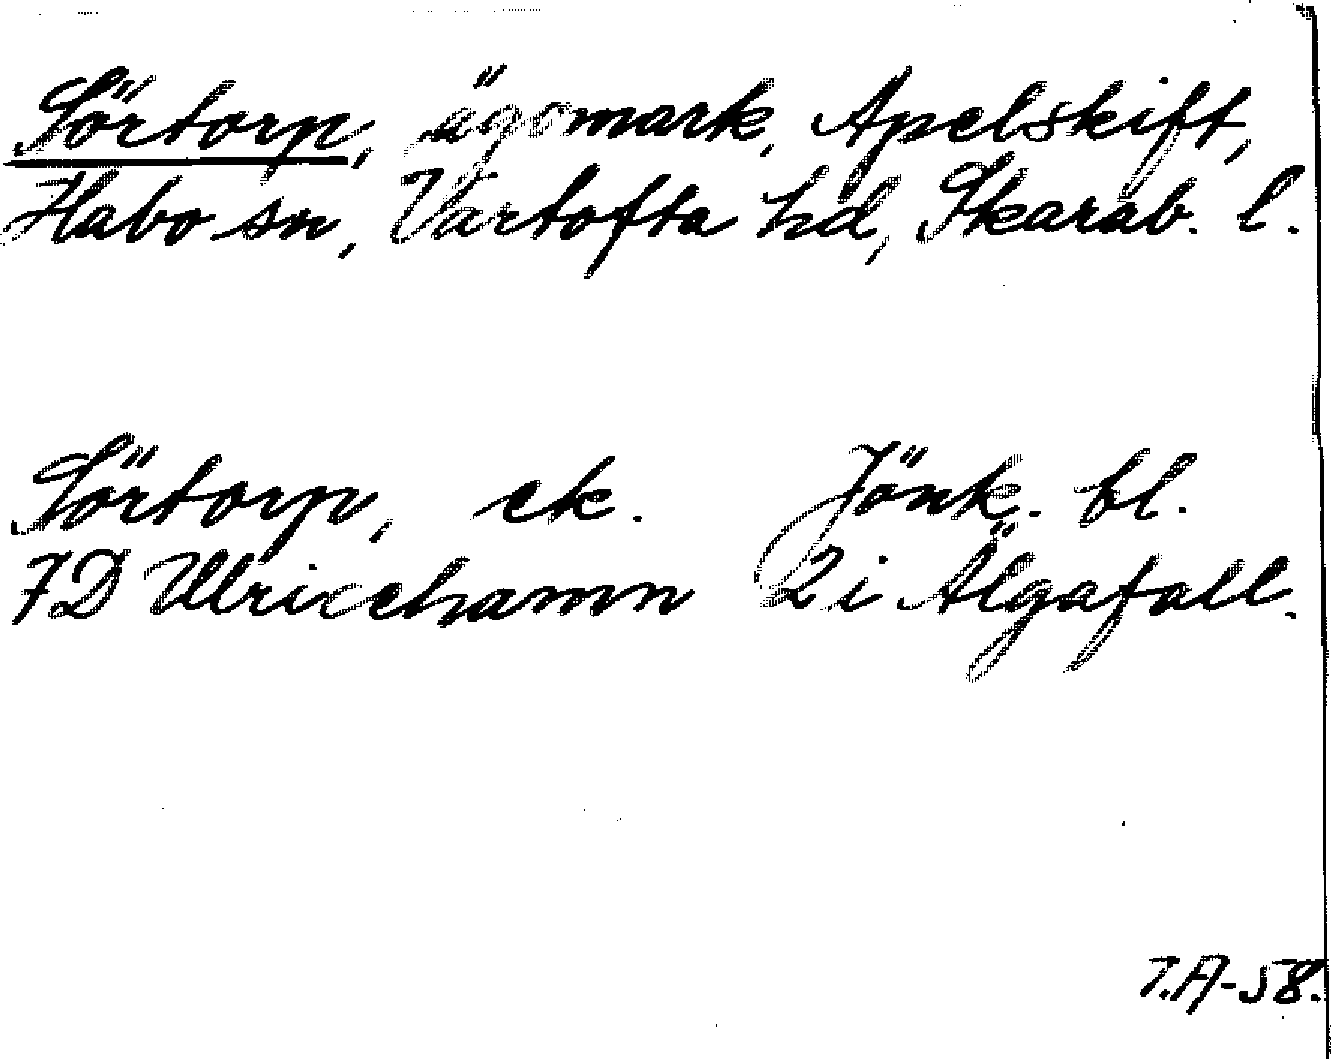 Sörtorp, ägomark, Apelskift,
Habo sn, Vartofta hd, Skarab. l.
Sörtorp, ek. Jönk. bl.
7D Ulricehamn 2 i Älgafall.
T.A-58.